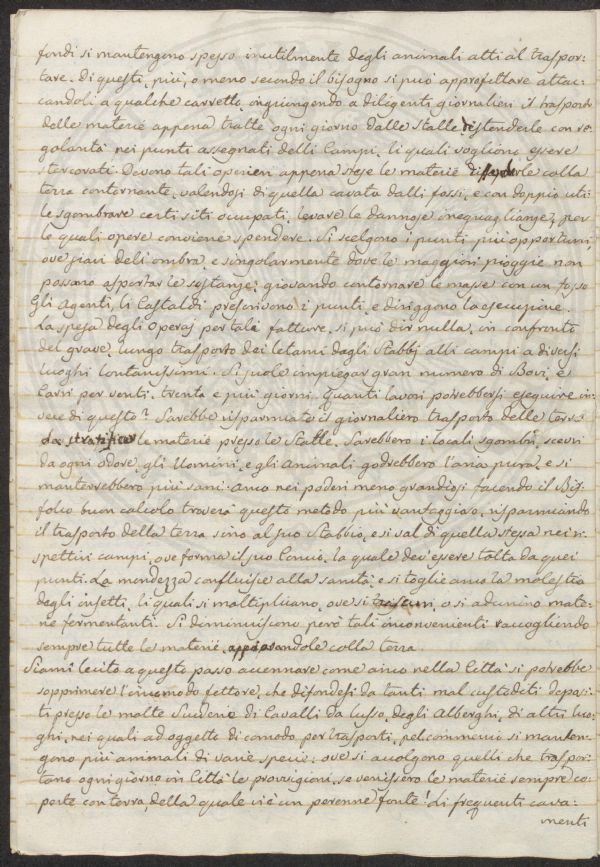 fondi si mantengono spesso inutilmente degli animali atti al traspor-
tare. Di questi, più, o meno secondo il bisogno si può approfittare attac-
candoli a qualche carretto, ingiungendo a diligenti giornalieri il trasporto
delle materie appena tratte ogni giorno dalle stalle, distenderle con re-
golarità nei punti assegnati delli Campi, li quali vogliono essere
stercorati. Devono tali operieri appena stese le materie difenderle colla
terra contornante, valendosi di quella cavata dalli fossi, e con doppio uti-
le sgombrare certi siti occupati, levare le dannose ineguaglianze, per
le quali opere conviene spendere. Si scelgono i punti più opportuni,
ove siavi dell'ombra, e singolarmente dove le maggiori pioggie non
possano asportar le sostanze; giovando contornare le masse con un fosso
Gli Agenti, li Castaldi prescrivono i punti, e diriggono la esecuzione.
La spesa degli Operaj per tale fatture, si può dir nulla, in confronto
del grave, lungo trasporto dei letami dagli Stabbj alli campi a diversi
luoghi lontanissimi. Si suole impiegar gran numero di Bovi, e
Carri per venti, trenta e più giorni. Quanti lavori potrebbersi eseguire in-
vece di questo? Sarebbe risparmiato il giornaliero trasporto delle terre
da stratificar le materie presso le Stalle. Sarebbero i locali sgombri, scevri
da ogni odore, gli Uomini, e gli Animali godrebbero l'aria pura, e si
manterrebbero più sani. Anco nei poderi meno grandiosi facendo il Bif-
folco buon calcolo troverà questo metodo più vantaggioso, risparmiando
il trasporto della terra sino al suo Stabbio, e si val di quella stessa nei ri-
spettivi campi, ove forma il suo Concio, la quale dev'essere tolta da quei
punti. La mondezza confluisce alla sanità, e si toglie anco la molestia
degli insetti, li quali si moltiplicano, ove si o si adunino mate-
rie fermentanti. Si diminuiscono però tali inconvenienti raccogliendo
sempre tutte le materie, colla terra
Siami lecito a questo passo accennare come anco nella Città si potrebbe
sopprimere l'incomodo fettore, che difondesi da tanti mal custoditi deposi-
ti presso le molte Scuderie di Cavalli da lusso, degli Alberghi, di altri luo-
ghi, nei quali ad oggetto di comodo per trasporti, pel commercio si manten-
gono più animali di varie specie: ove si accolgono quelli che traspor-
tano ogni giorno in Città le provigioni, se venissero le materie sempre co-
perte con terra, della quale vi è un perenne fonte! Li frequenti cava-
menti